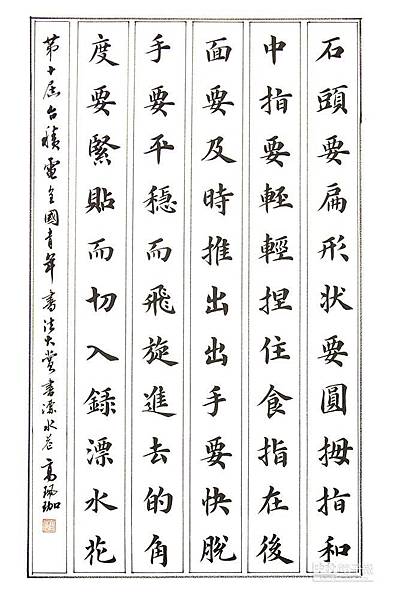 石頭要扁形状要圓拇指和
中指要輕輕捏住食指在後
面要及時推出出手要快脫
手要平穩而飛旋進去的角
度要緊貼而切入錄漂水花
第十届台積電全國青年書法大賞書漂水花 高珮珈